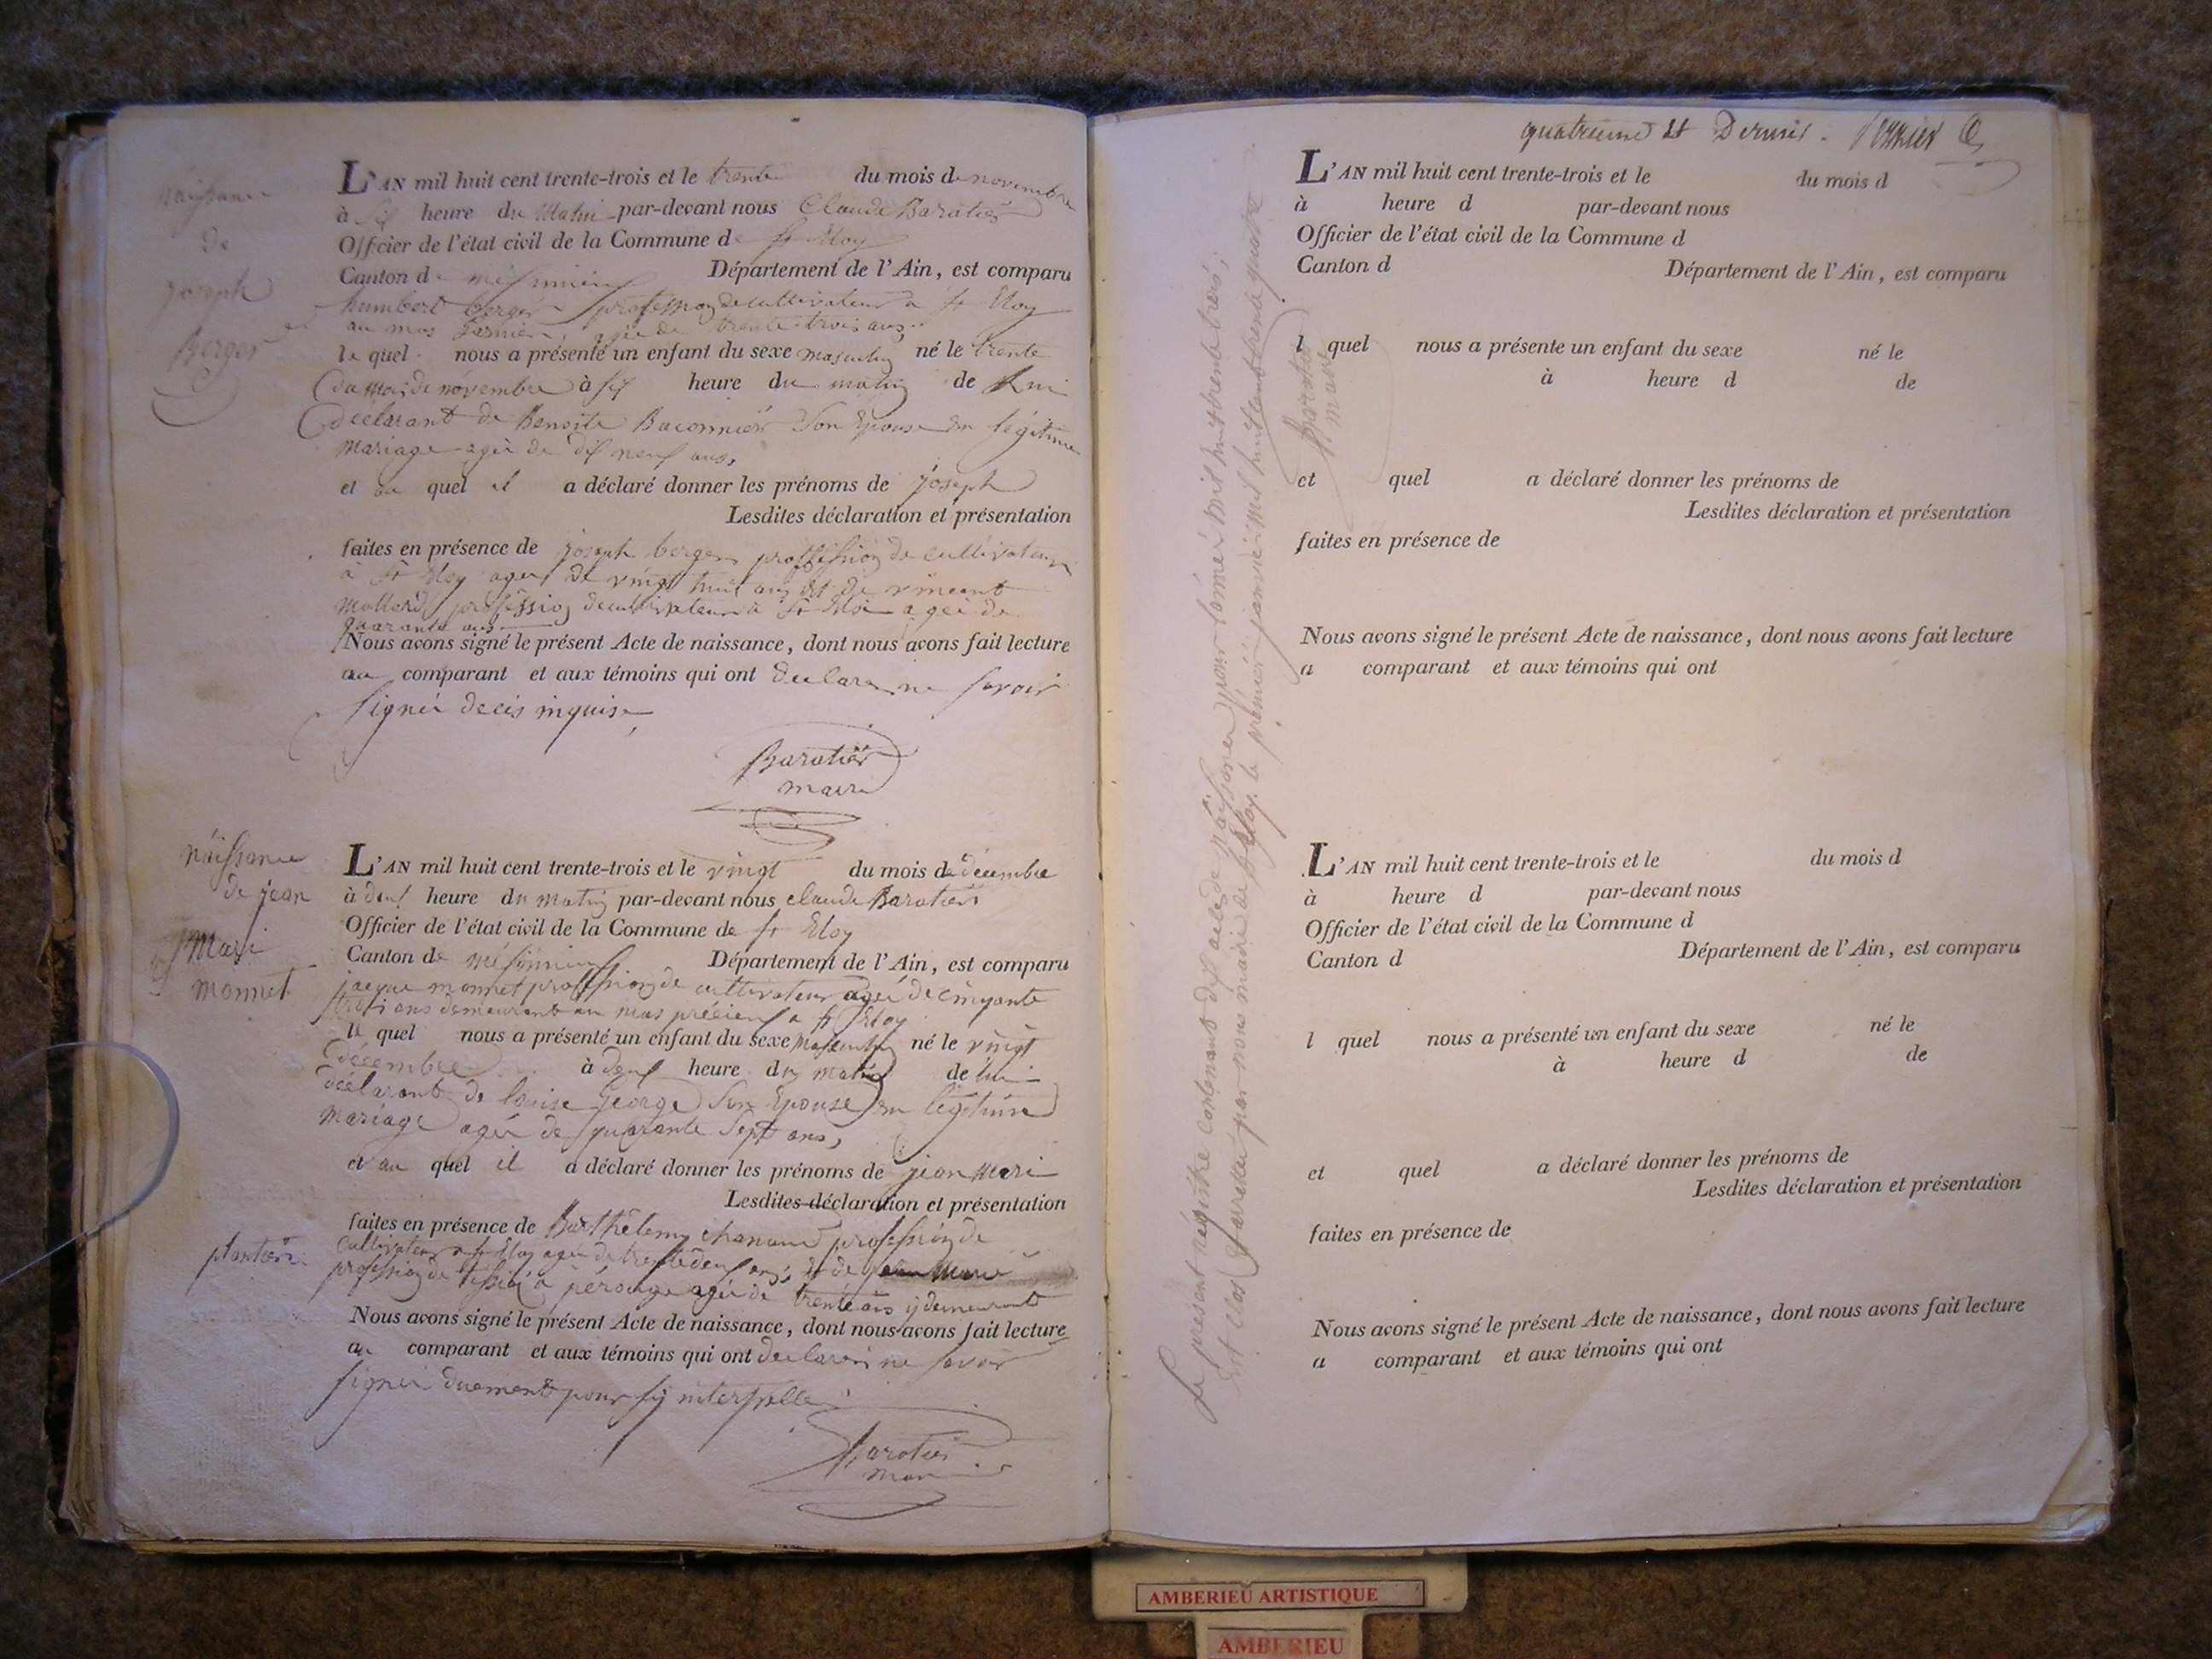 naissance
de
joseph
Berger
L'AN mil huit cent trente-trois et le trente du mois de novembre
à six heure du Matin par-devant nous Claude Baratier
Officier de l'état civil de la Commune de st Eloy
Canton de méximieux Département de l'Ain, est comparu
humbert berger profession de cultivateur a st Eloy
au mas agée de trente trois ans
le quel nous a présenté un enfant du sexe masculin né le trente
du mois de novembre à six heure du matin de Lui
declarant de Benoite Baconnier Son Epouse en légitime
mariage agée de dix neuf ans,
et au quel il a déclaré donner les prénoms de joseph
Lesdites déclaration et présentation
faites en présence de joseph berger proffession de cultivateur
à st Eloy agée de vingt huit ans et de vincent
Mollard profession de cultivateur à st Eloi agée de
quarante ans
Nous avons signé le présent Acte de naissance, dont nous avons fait lecture
au comparant et aux témoins qui ont declare ne savoir
signer de ces inquise
Baratier
maire
naissance
de jean
Mari
monnet
L'AN mil huit cent trente-trois et le vingt du mois de décembre
à deux heure du matin par-devant nous claude Baratier
Officier de l'état civil de la Commune de st Eloy
Canton de méximieux Département de l'Ain, est comparu
jacque monnet profession de cultivateur agée de cinquante
trois ans demeurant au mas a st Eloy
le quel nous a présenté un enfant du sexe masculin né le vingt
décembre à deux heure du matin de lui
déclarant de louise George Son Epouse en légitime
mariage agée de quarante Sept ans,
et au quel il a déclaré donner les prénoms de jean Mari
Lesdites déclaration et présentation
faites en présence de Barthélemy profession de
cultivateur a st Eloy agée de trente deux ans et de jean Marie
plantier
profession de tissier à pérouge agée de trente ans y demeurant
Nous avons signé le présent Acte de naissance, dont nous avons fait lecture
au comparant et aux témoins qui ont declarer ne savoir
signer duement pour sy interpelle
Baratier
maire
quatrieme et Dernier.
L'AN mil huit cent trente-trois et le du mois d
à heure d par-devant nous
Officier de l'état civil de la Commune d
Canton d Département de l'Ain, est comparu
l quel nous a présenté un enfant du sexe né le
à heure d de
et quel a déclaré donner les prénoms de
Lesdites déclaration et présentation
faites en présence de
Nous avons signé le présent Acte de naissance, dont nous avons fait lecture
a comparant et aux témoins qui ont
L'AN mil huit cent trente-trois et le du mois d
à heure d par-devant nous
Officier de l'état civil de la Commune d
Canton d Département de l'Ain, est comparu
l quel nous a présenté un enfant du sexe né le
à heure d de
et quel a déclaré donner les prénoms de
Lesdites déclaration et présentation
faites en présence de
Nous avons signé le présent Acte de naissance, dont nous avons fait lecture
a comparant et aux témoins qui ont
Le present régistre contenant des actes de naissance pour l'année mil huit trente trois,
est clos et arreter par nous maire de st Eloy le premier janvier mil huit cent trente quatre
Baratier
maire
AMBERIEU ARTISTIQUE
AMBERIEU